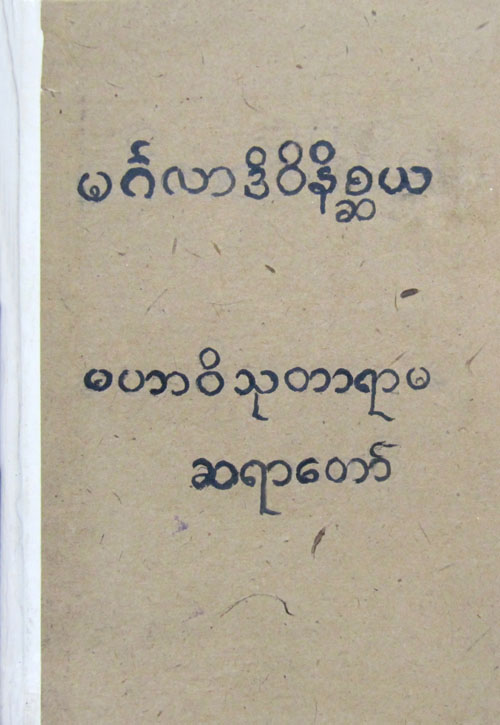 မင်္ဂလာဒိဝိနိစ္ဆယ
မဟာဝိသုတာရာမ
ဆရာတော်